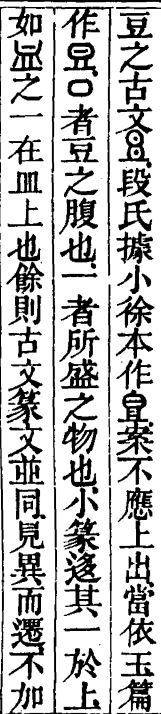 豆之古文段氏據小徐本作案不應上出當依玉篇
作○者豆之腹也一者所盛之物也小篆迻其一於上
如之一在皿上也餘則古文篆文並同見異而遷不加